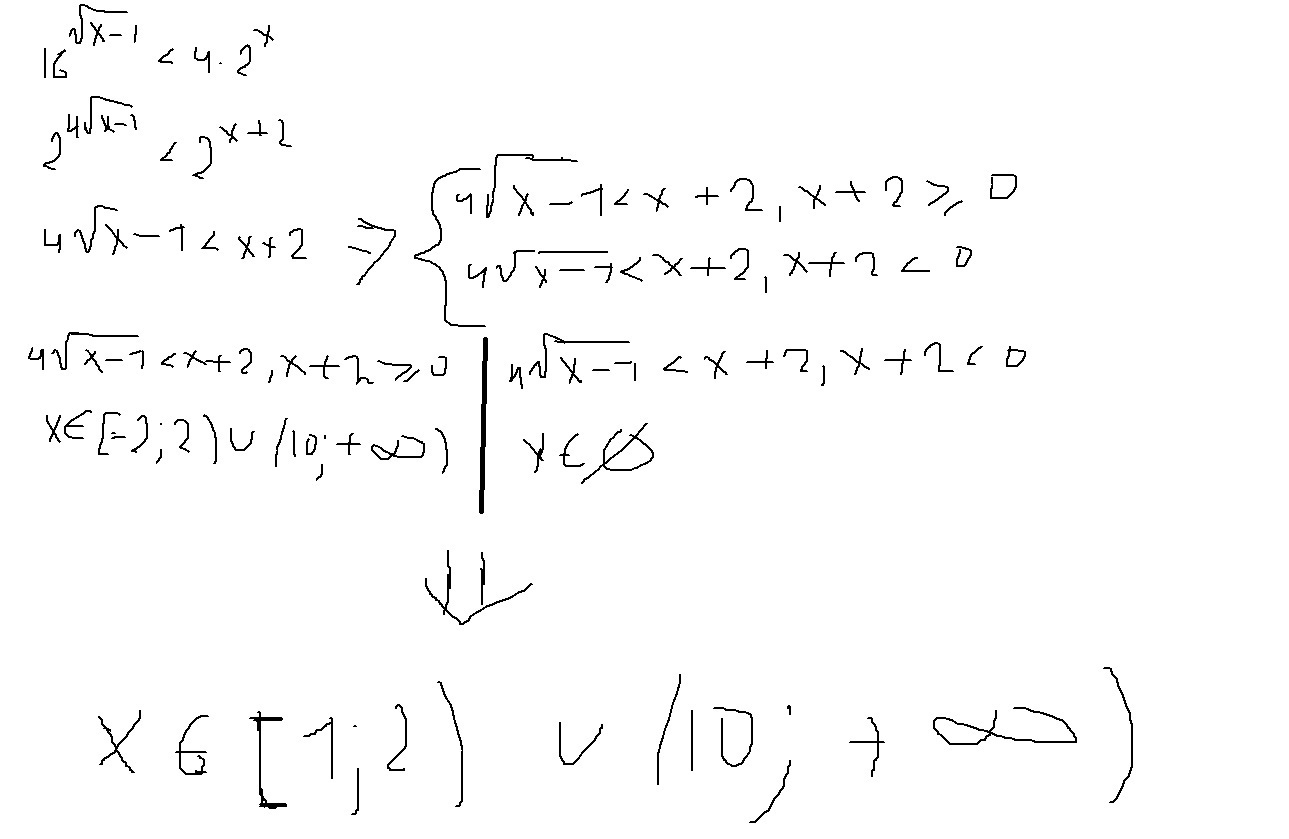 16^√(x-1) < 4 · 2^x
2^(4√(x-1)) < 2^(x+2)
4√x-1 < x+2 ⇒ { 4√(x-1) < x+2, x+2 ⩾ 0
4√(x-1) < x+2, x+2 < 0
4√(x-1) < x+2, x+2 ⩾ 0 | 4√(x-1) < x+2, x+2 < 0
x∈[-2; 2) ∪ (10; +∞) | x∈∅
⇓
x ∈ [1; 2) ∪ (10; +∞)